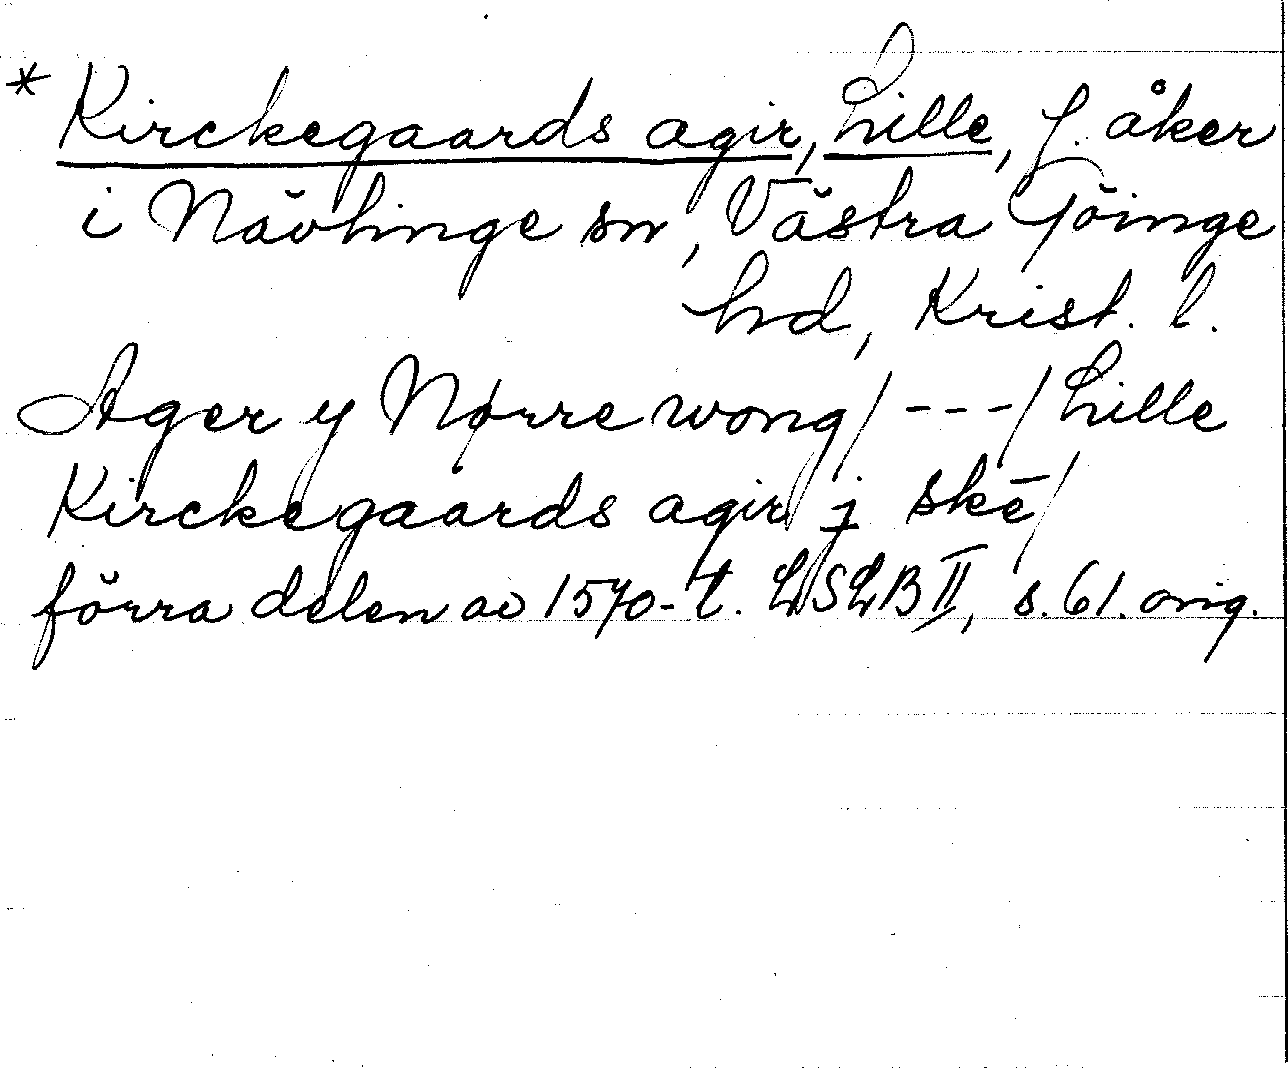 * Kirckegaards agir, Lille, f. åker
i Nävlinge sn, Västra Göinge
hd, Krist. l.
Ager y Nørre wong/ ---/ Lille
Kirckegaards agir/ j skē/
förra delen av 1570-t. LSLB II, s. 61. orig.